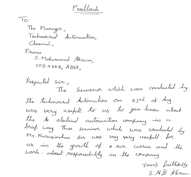 Feedback
To
The Manager,
Technocrat Automation,
Chennai.
From
S. Mohamed
Respected Sir,
The Seminar which was conducted by
the Technocrat Automation on 23rd of Aug
was very useful to us to you know about
the electrical automation company in a
brief way. The seminar what was conducted by
Mr. was very useful for
us in the growth of our career and the
work about responsibility in the company
yours faithfully